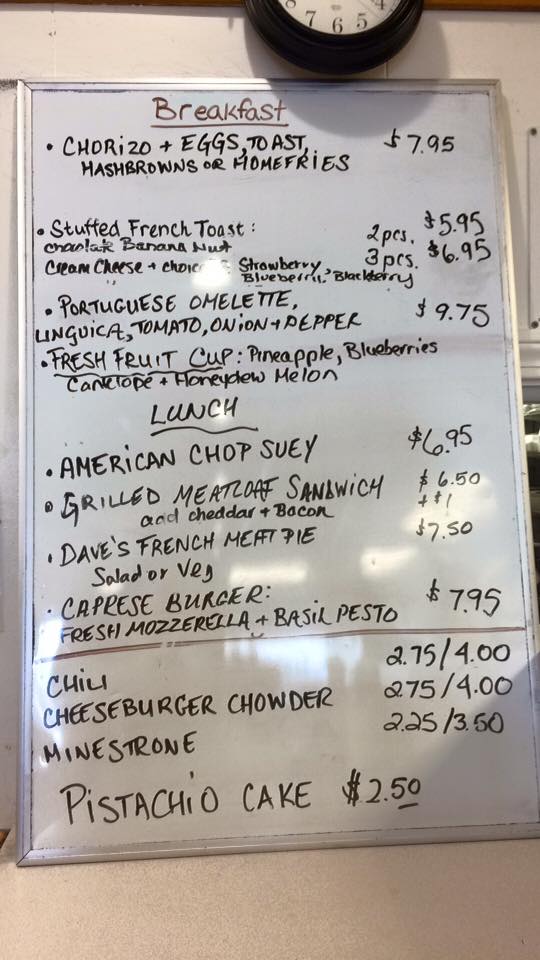 8 7 6 5 4
Breakfast
• CHORIZO + EGGS, TOAST, $7.95
HASHBROWNS OR HOMEFRIES
• Stuffed French Toast: 2pcs. $5.95
Banana Nut 3pcs. $6.95
Cream Cheese + Strawberry
Blueberry, Blackberry
• PORTUGUESE OMELETTE, $9.75
LINGUICA, TOMATO, ONION + PEPPER
• FRESH FRUIT CUP: Pineapple, Blueberries
Cantelope + Honeydew Melon
LUNCH
• AMERICAN CHOP SUEY $6.95
• GRILLED MEATLOAF SANDWICH $6.50
add cheddar + Bacon + $1
• DAVE'S FRENCH MEAT PIE $7.50
Salad or Veg
• CAPRESE BURGER: $7.95
FRESH MOZZERELLA + BASIL PESTO
CHILI 2.75/4.00
CHEESEBURGER CHOWDER 2.75/4.00
MINESTRONE 2.25/3.50
PISTACHIO CAKE $2.50